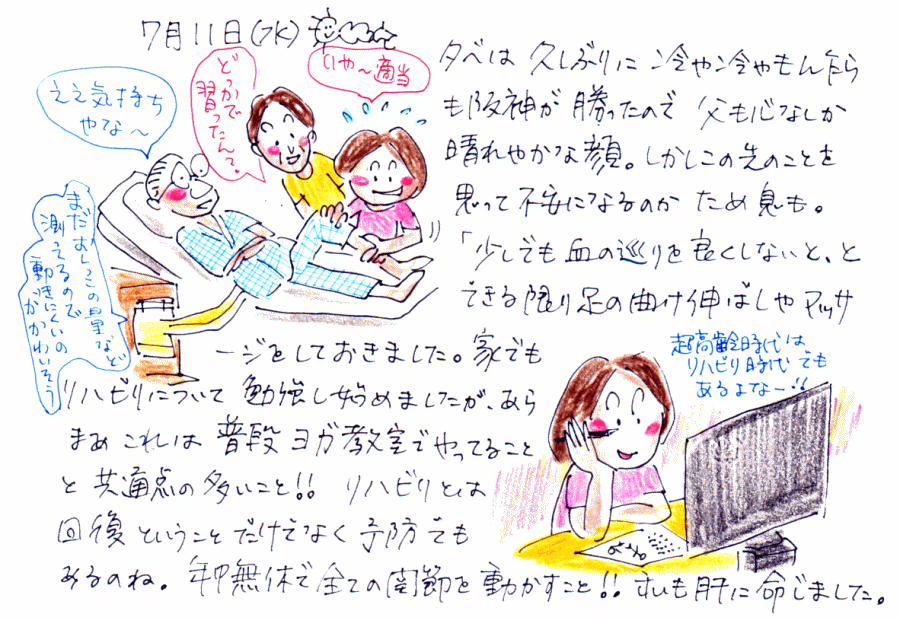 7月11日(水)
ええ気持ち
やな〜
どっかで
習ったん?
いや〜適当
まだおしっこの量など
測ってるので
動きにくいの
がかわいそう
夕べは 久しぶりに 冷や冷やもんながら
も阪神が 勝ったので 父も心なしか
晴れやかな顔。しかしこの先のことを
思って 不安になるのか ため息も。
「少しでも 血の巡りを 良くしないと、と
できる限り足の曲げ伸ばしや マッサ
ージをしておきました。家でも
リハビリについて 勉強し始めましたが、あら
まぁ これは 普段 ヨガ教室でやってること
と 共通点の多いこと!! リハビリとは
回復ということだけでなく 予防でも
あるのね。年中無休で 全ての関節を 動かすこと!! 肝に命じました。
超高齢時代は
リハビリ時代でも
あるよなー!!